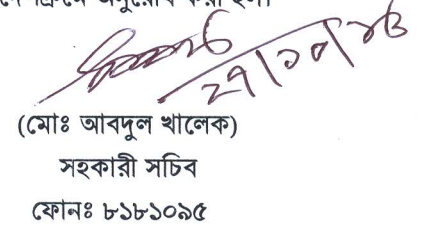 অনুরোধ করা হল।
২৭/১০/
(মোঃ আবদুল খালেক)
সহকারী সচিব
ফোনঃ ৮১৮১০৯৫